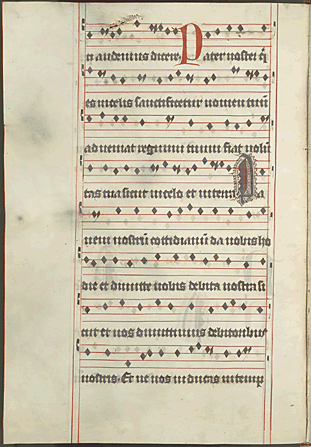 et audemus dicere Pater noster q̄
es in celis sanctificetur nomen tuū
adveniat regnum tuum fiat volū
tas tua sicut in celo et in terra
nem nostrū cottidianū da nobis ho
die et dimitte nobis debita nostra si
cut et nos dimittimus debitoribus
nostris. Et ne nos inducas in temp